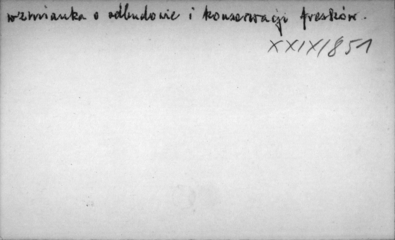 wzmianka o odbudowie i konserwacji fresków.
XXIX/851